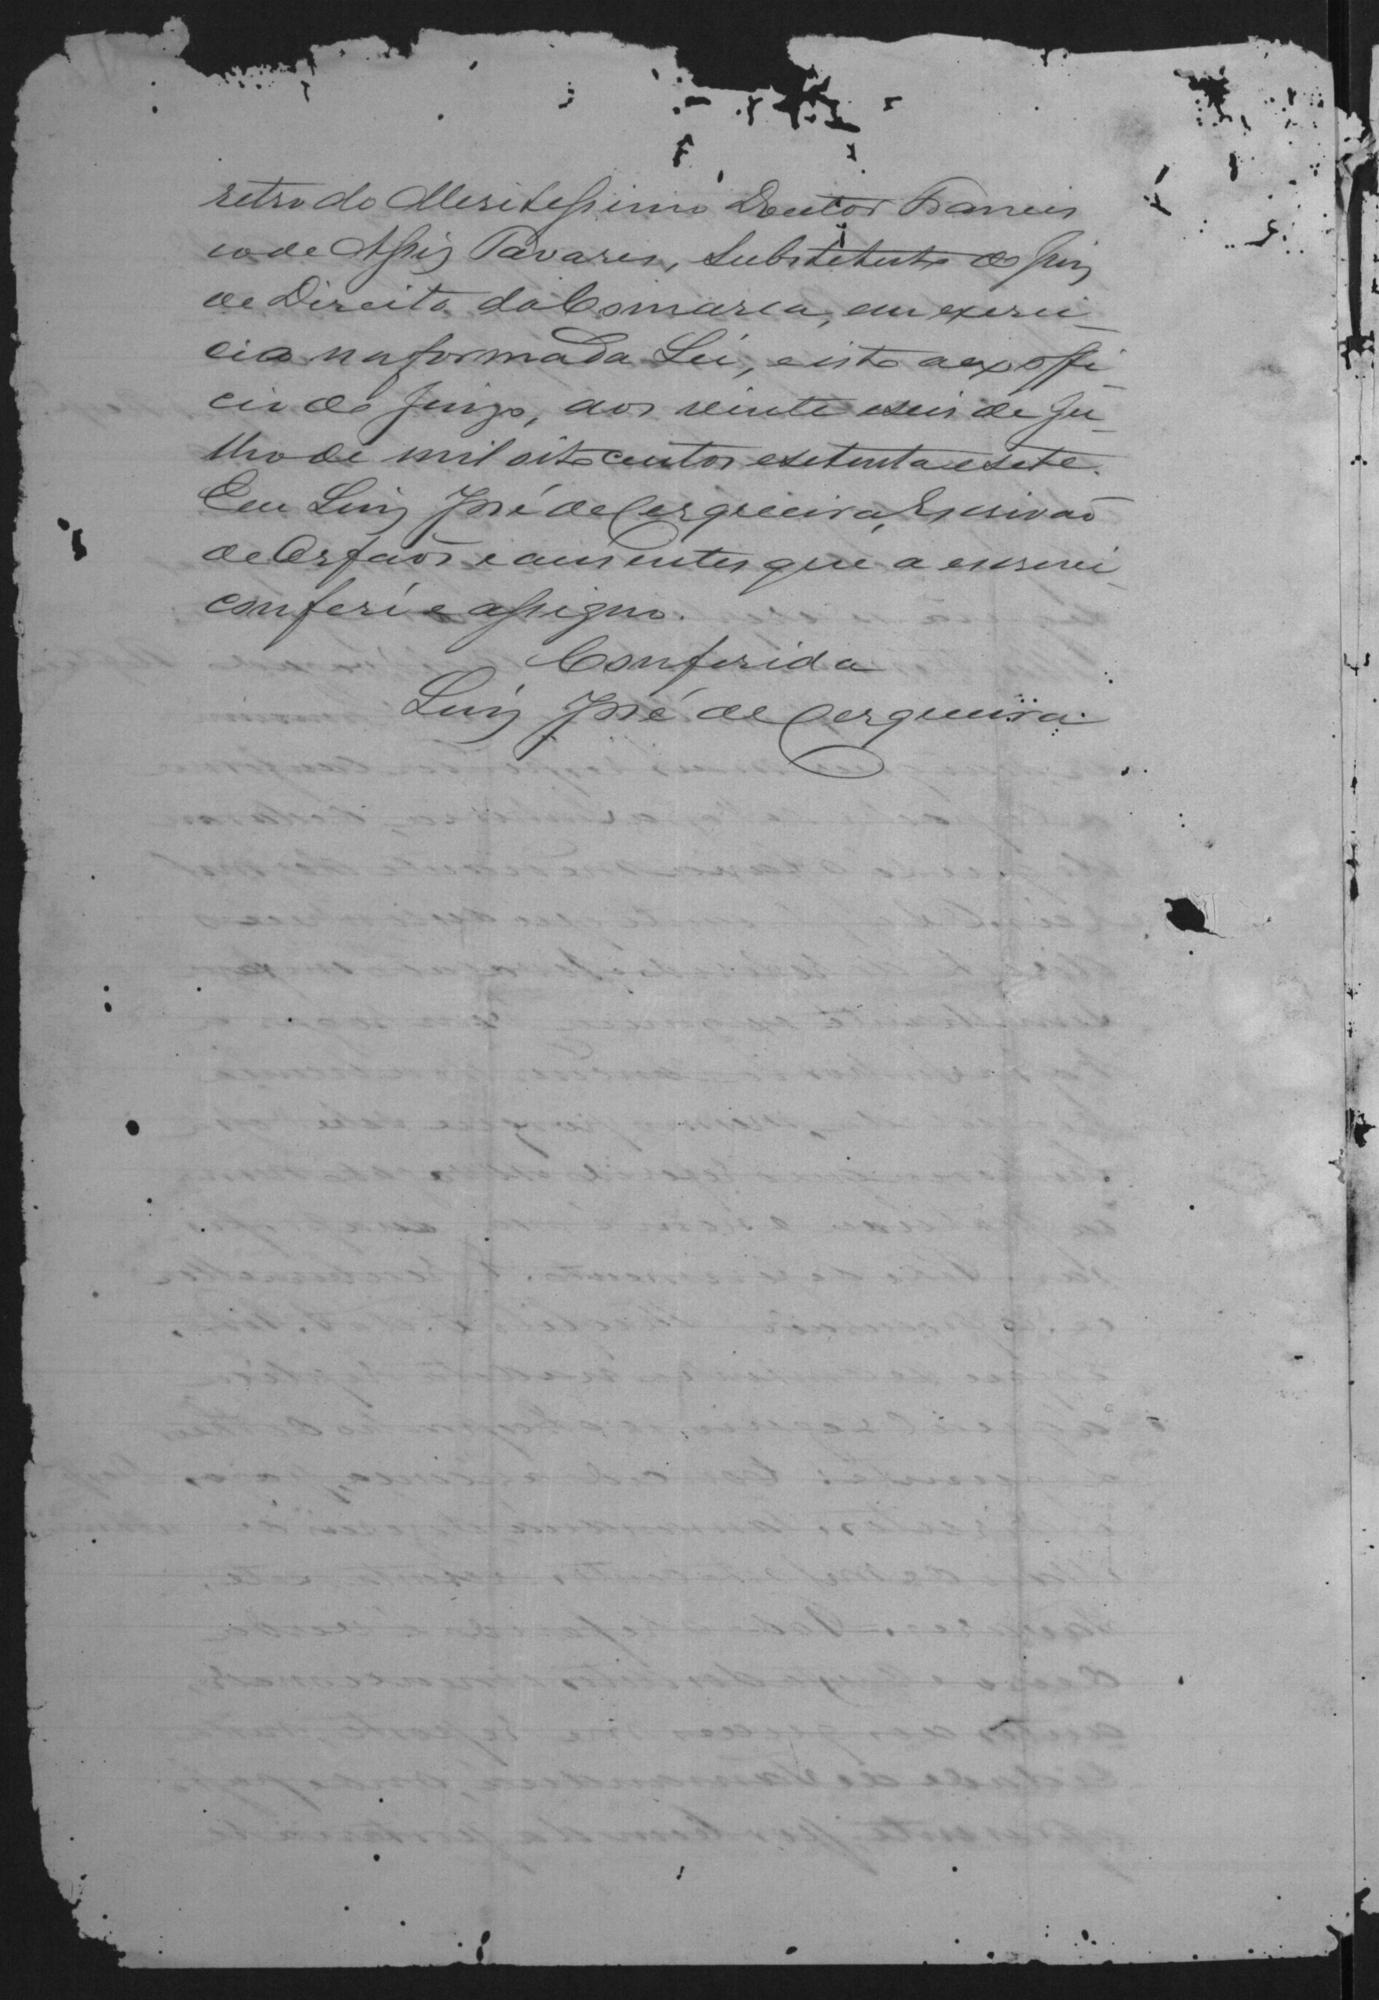 retro do Meritessimo Doutor Francis
co de Assis Tavares, Substetuto do Juiz
de Direito da Comarca, em exerci_
cio na forma da Lei, e isto aexoffi_
cio do Juizo, aos vinte e seis de Ju_
lho de mil oito centos e setenta e sete.
Eu Luiz José de Cerqueira, Escrivaõ
de Orfaõs e ausentes que a escrevi_
conferi e assigno.
Conferida
Luiz José de Cerqueira